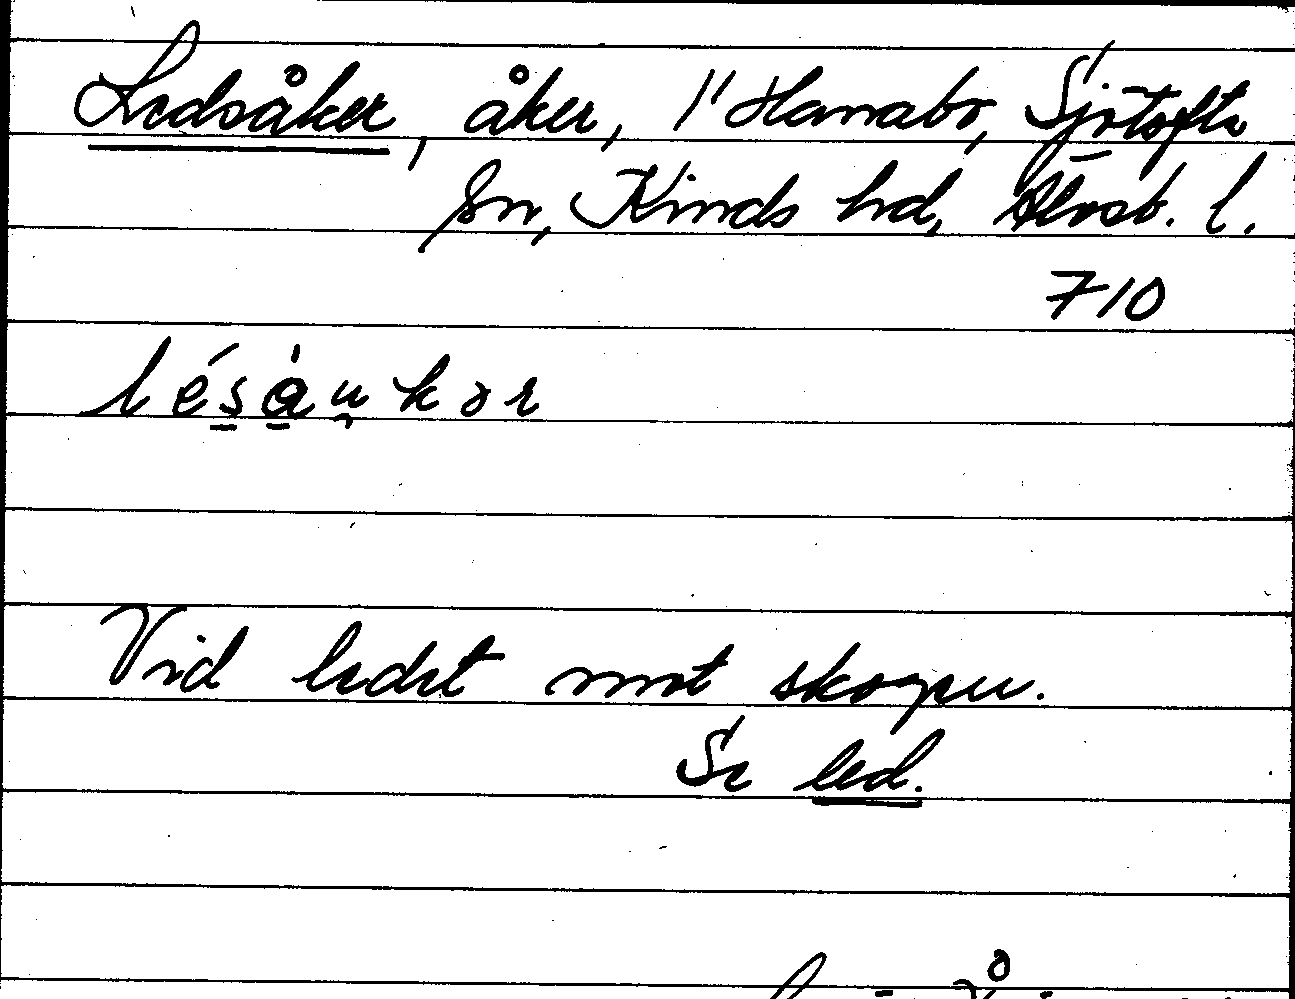 Ledsåker, åker, 1" Hanabo, Sjötofta
sn, Kinds hd, Älvsb. l.
710
lésàu̯kər
Vid ledet mot skogen.
Se led.